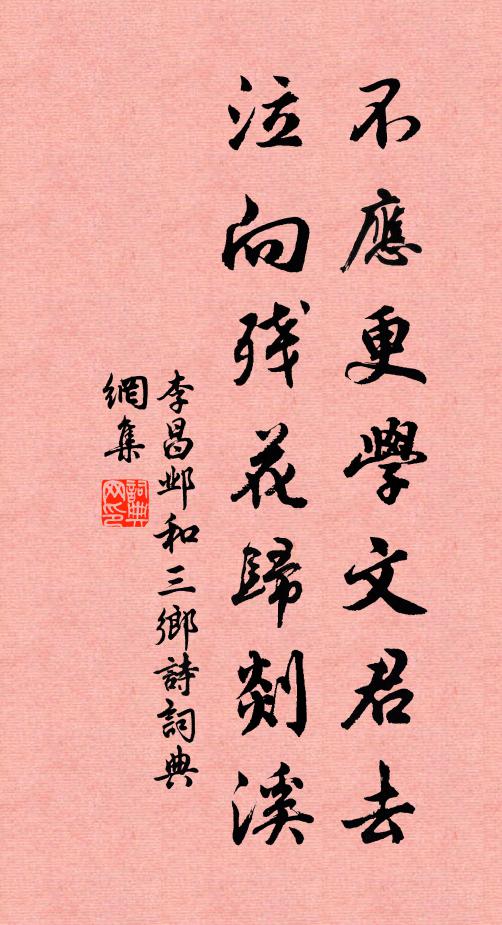 不應更學文君去
泣向残花歸剡溪
李昌邺和三鄉詩詞典
網集
詞典
网印